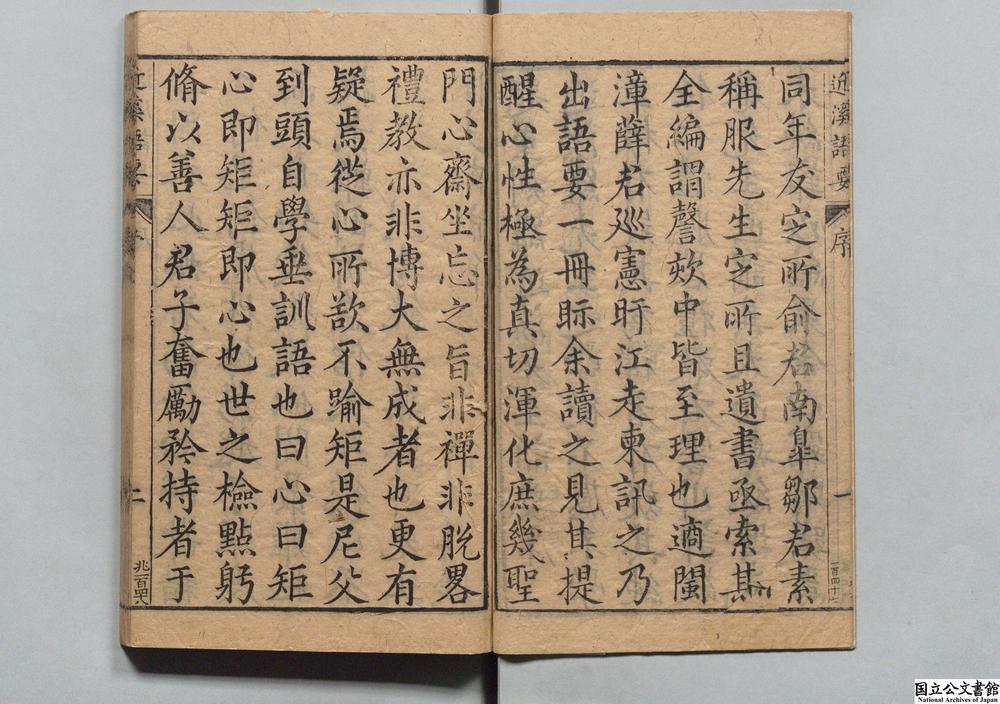 近溪語要
序
一
一百四十七
同年友定所俞君南臯鄒君素
稱服先生定所且遺書亟索其
全編謂謦欬中皆至理也適閩
漳薛君巡憲盱江走柬訊之乃
出語要一冊眎余讀之見其提
醒心性極為真切渾化庶幾聖
門心齋坐忘之旨非禪非脫畧
禮教亦非博大無成者也更有
疑焉從心所欲不踰矩是尼父
到頭自學垂訓語也曰心曰矩
心即矩矩即心也世之檢點躬
脩以善人君子奮勵矜持者于
近溪語要
二
国立公文書館
National Archives of Japan